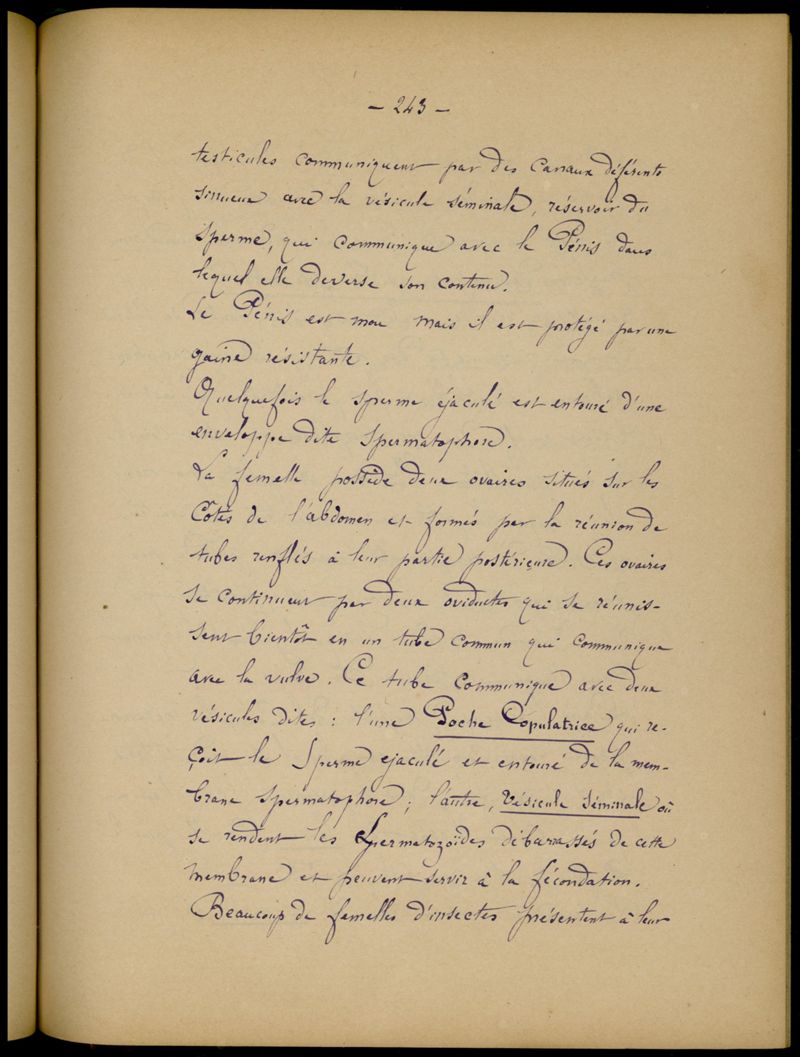 - 243 -
testicules communiquent par des canaux déférents
sinueux avec la vésicule séminale, réservoir du
sperme, qui communique avec le Pénis dans
lequel elle deverse son contenu.
Le Pénis est mou mais il est protégé par une
gaine résistante.
Quelquefois le sperme éjaculé est entouré d'une
enveloppe dite spermatophore.
La femelle possède deux ovaires situés sur les
Côtés de l'abdomen et formés par la réunion de
tubes renflés à leur partie postérieure. Ces ovaires
se continuent par deux oviductes qui se réunis-
sent bientôt en un tube commun qui communique
avec la vulve. Ce tube communique avec deux
vésicules dites : l'une Poche Copulatrice qui re-
çoit le Sperme ejaculé et entouré de la mem-
brane spermatophore ; l'autre, Vésicule séminale où
se rendent les Spermatozoïdes débarassés de cette
membrane et peuvent servir à la fécondation.
Beaucoup de femelles d'insectes présentent à leur